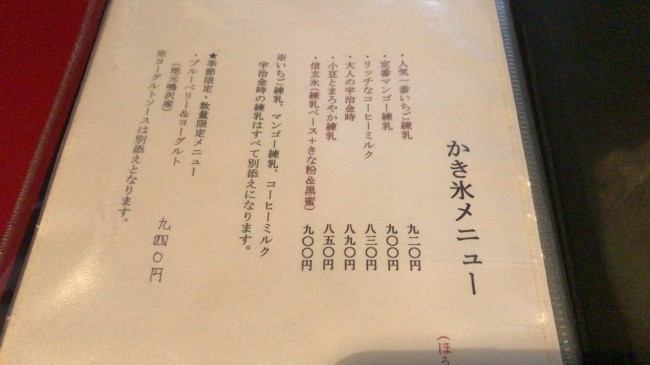 かき氷メニュー
・人気一番いちご練乳 九二〇円
・定番マンゴー練乳 九〇〇円
・リッチなコーヒーミルク 八三〇円
・大人の宇治金時 八九〇円
・小豆とまろやか練乳 八五〇円
・信玄氷(練乳ベース+きな粉&黒蜜) 九〇〇円
※いちご練乳、マンゴー練乳、コーヒーミルク
宇治金時の練乳はすべて別添えになります。
★季節限定・数量限定メニュー
・ブルーベリー&ヨーグルト
(地元鳴沢産) 九四〇円
※ヨーグルトソースは別添えとなります。
(ほう